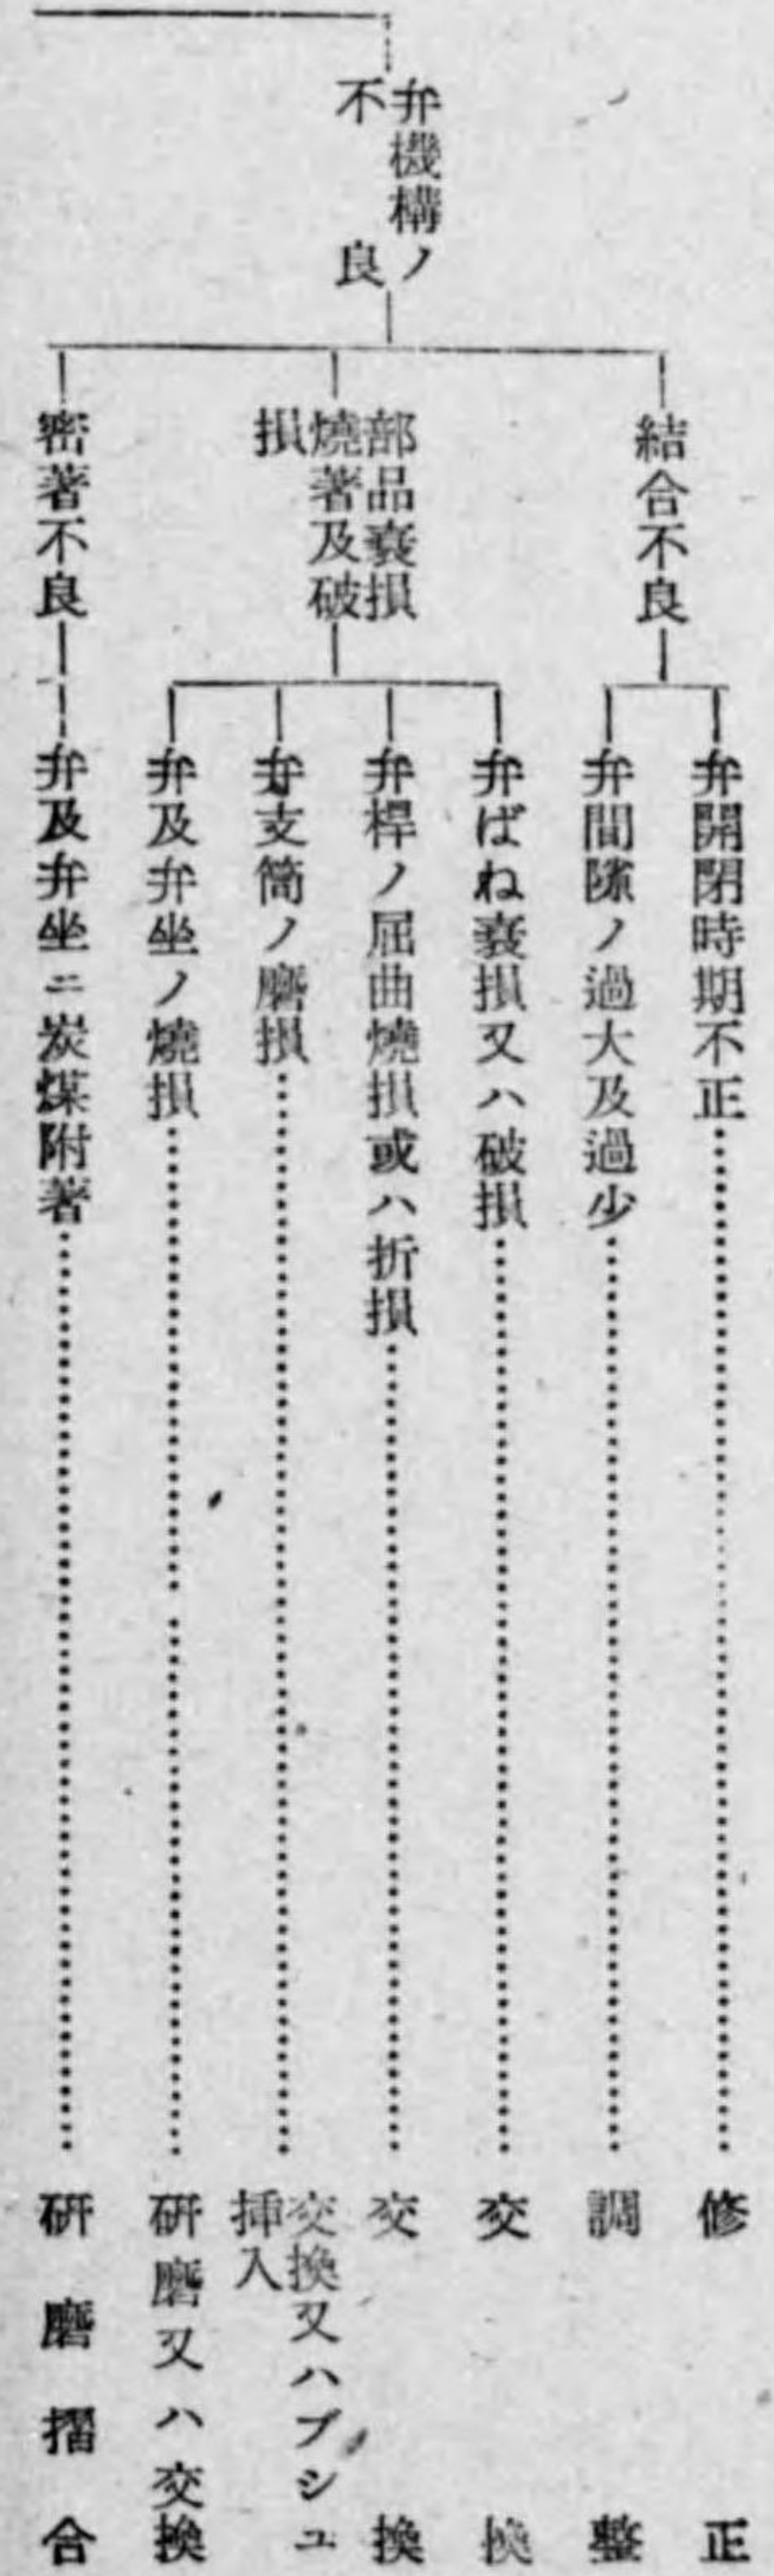 弁機構ノ
不良
結合不良
弁開閉時期不正……修正
弁間隙ノ過大及過少……調整
部品衰損
燒著及破
損
弁ばね衰損又ハ破損……交換
弁桿ノ屈曲燒損或ハ折損……交換
弁支筒ノ磨損……交換又ハブシユ
挿入
弁及弁坐ノ燒損……研磨又ハ交換
密著不良
弁及弁坐ニ炭煤附著……研磨摺合